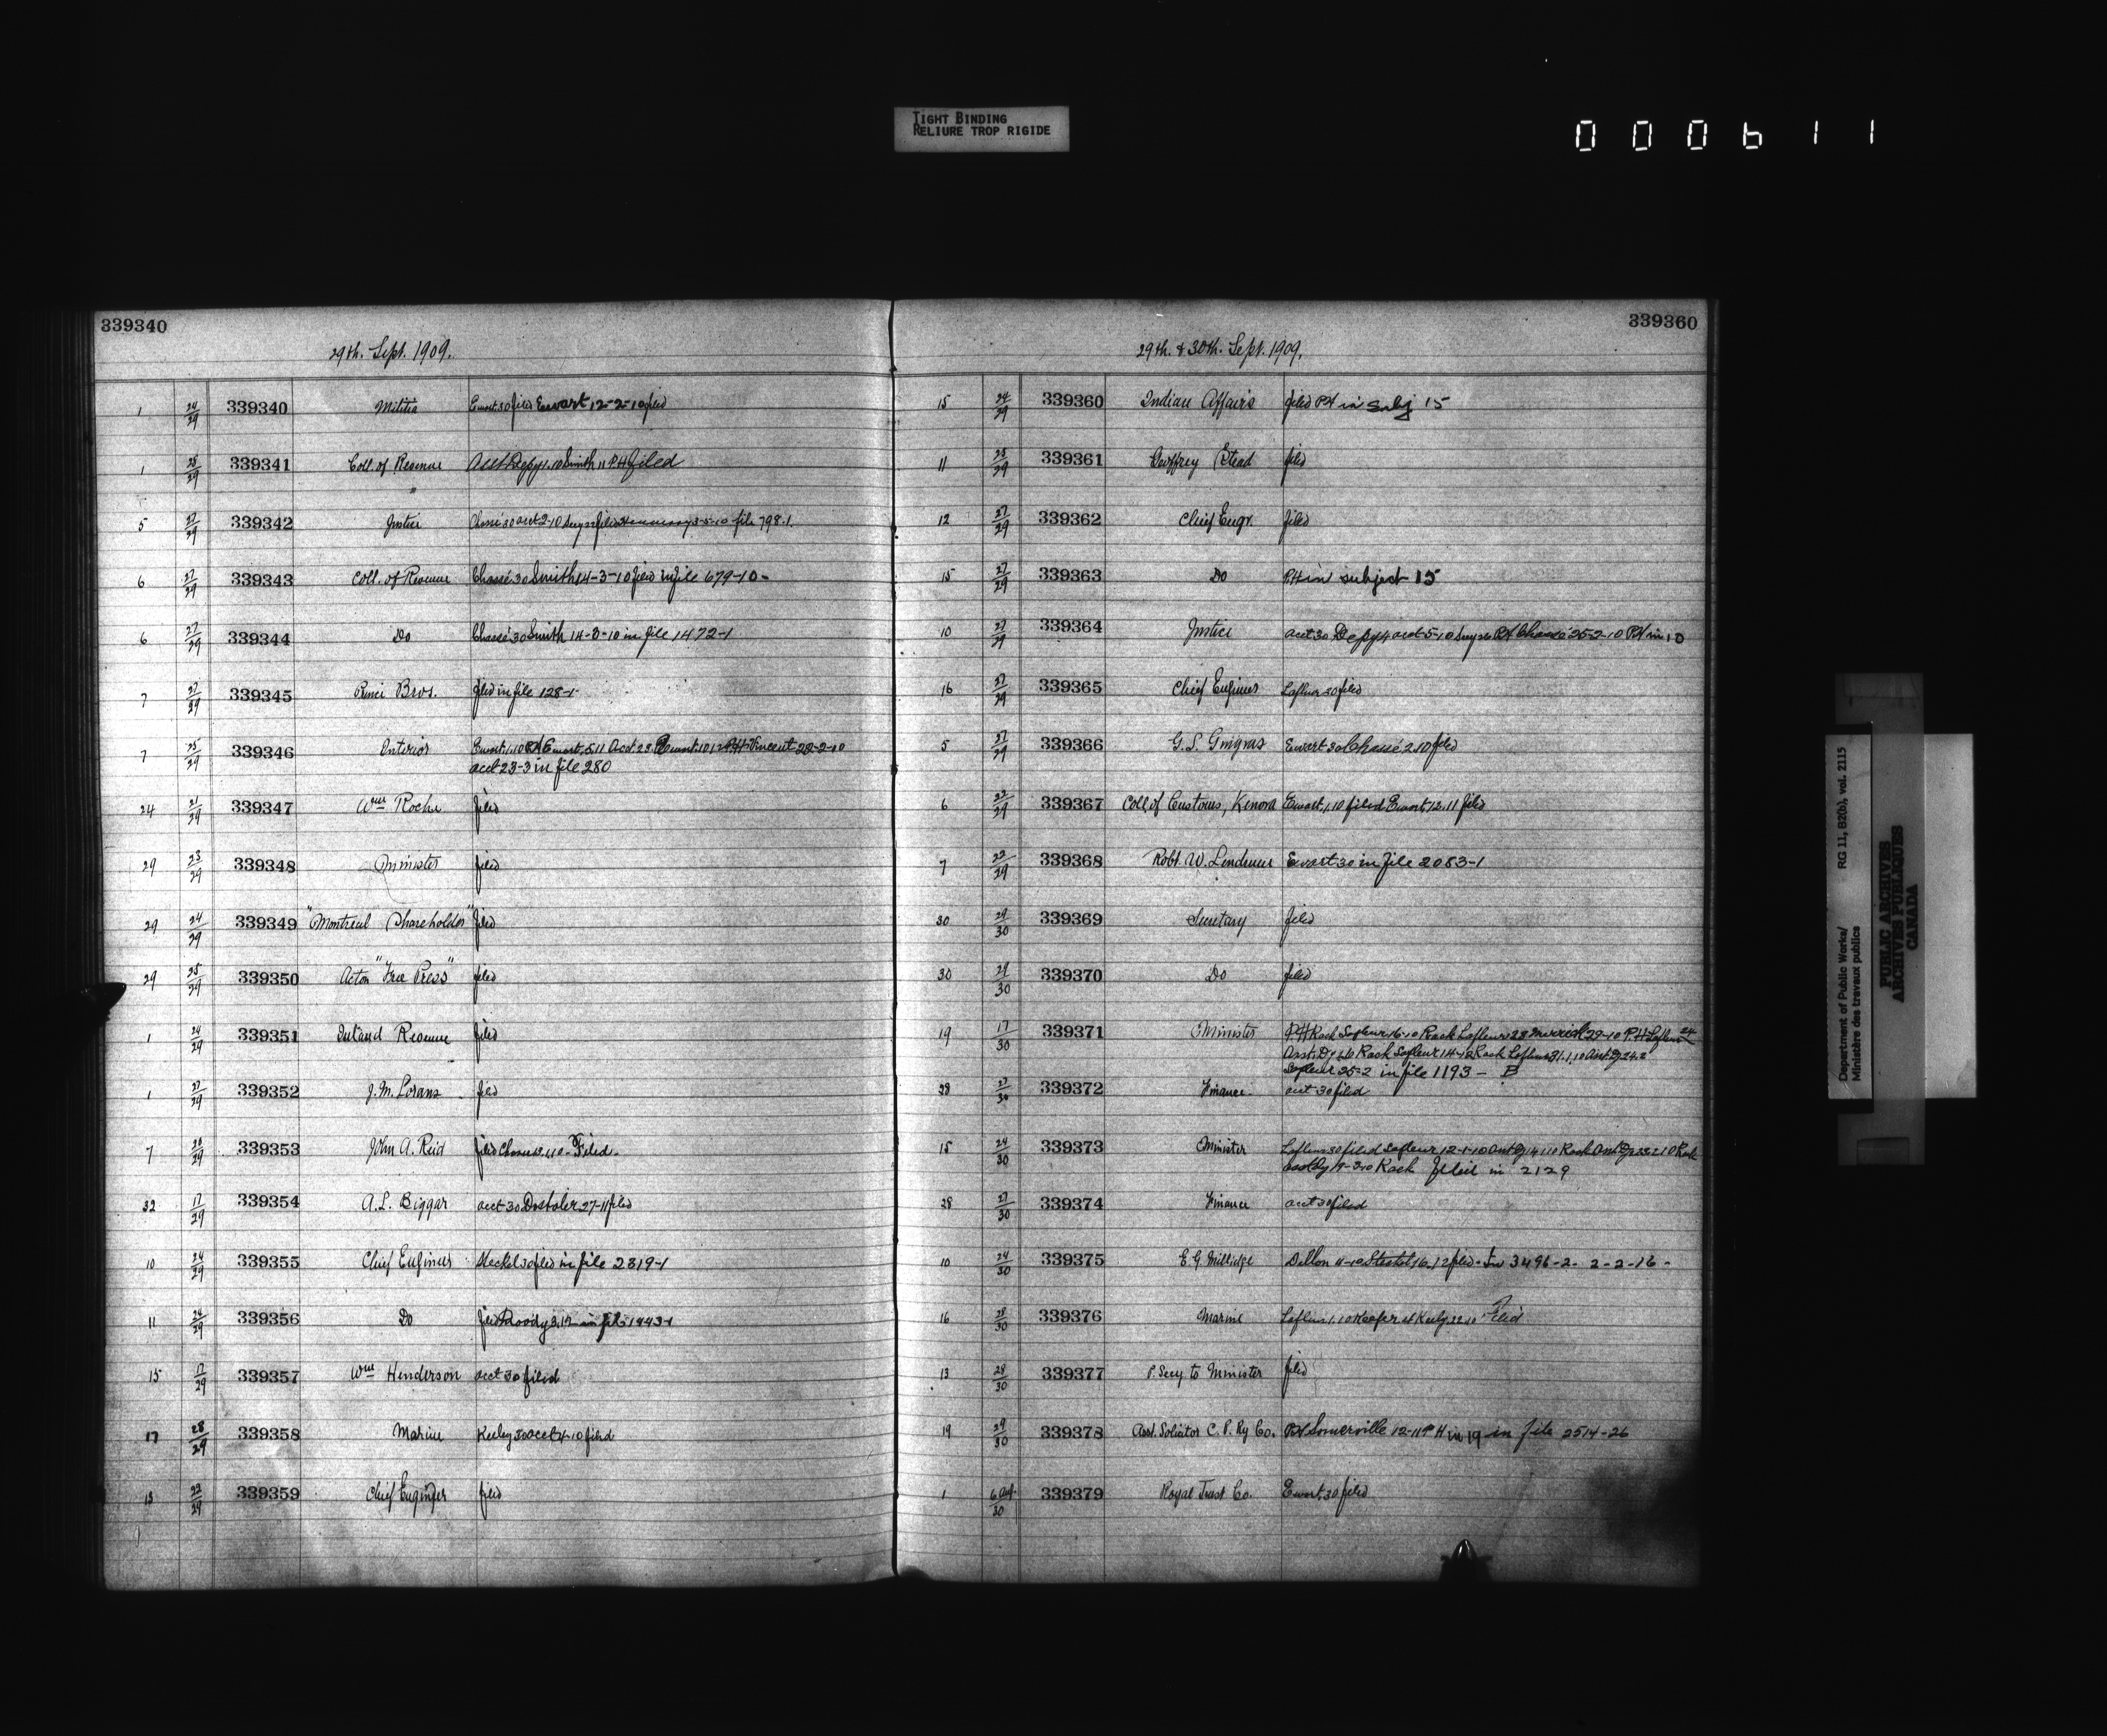 TIGHT BINDING
RELIURE TROP RIGIDE
000611
339340
29th. Sept. 1909.
1 24/29 339340 Militia Ewart 30 filed Ewart 12-2-10 filed
1 28/29 339341 Coll. of Revenue acct Depy 1.10 Smith 11 P.H filed
5 27/29 339342 Justice Chassé 30 acct 2-10 3-5-10 file 798-1.
6 27/29 339343 Coll. of Revenue Chassé 30 Smith 14-3-10 filed in file 679-10-
6 27/29 339344 Do Chassé 30 Smith 14-3-10 in file 1472-1
7 27/29 339345 Bros. filed in file 128-1
7 25/29 339346 Interior Ewart 1.10 P.H Ewart 5.11 Acct. 23. Ewart 10.12 P.H. Vincent 28-2-10
acct 23-3 in file 280
24 21/29 339347 Wm Roche filed
29 23/29 339348 Minister filed
29 24/29 339349 "Montreal Shareholder" filed
29 25/29 339350 Acton "Free Press" filed
1 24/29 339351 Inland Revenue filed
1 27/29 339352 J. M. filed
7 339353 John A. Reid filed Chassé Filed.
32 17/29 339354 A. L. Biggar acct 30 27-11 filed
10 24/29 339355 Chief Engineer Heckel 30 filed in file 2819-1
11 24/29 339356 Do filed in file 1443-1
15 17/29 339357 Wm Henderson acct 30 filed
17 28/29 339358 Marine Keeley 30 acct 4-10 filed
22/29 339359 Chief Engineer filed
339360
29th. & 30th. Sept. 1909.
15 24/29 339360 Indian Affairs filed P.H in Subj 15
11 25/29 339361 Geoffrey Stead filed
12 27/29 339362 Chief Engr. filed
15 27/29 339363 Do P.H in subject 15
10 27/29 339364 Justice acct 30 Depy 4 acct 5-10 P.H Chassé 25-2-10 P.H in 10
16 27/29 339365 Chief Engineer Lafleur 30 filed
5 27/29 339366 G. S. Gingras Ewart 30 Chassé 2.10 filed
6 22/29 339367 Coll. of Customs, Kenora Ewart 1.10 filed Ewart 12.11 filed
7 22/29 339368 Robt. W. Ewart 30 in file 2083-1
30 29/30 339369 Secretary filed
30 29/30 339370 Do filed
19 17/30 339371 Minister P.H Rack Lafleur 16-10 Rack Lafleur 28 29-10 P.H Lafleur 24
Asst. Dy Rack Lafleur 14-12 Rack Lafleur 31.1.10 Asst Dy 24.2
Lafleur 25-2 in file 1193 - B
28 27/30 339372 Finance. acct 30 filed
15 24/30 339373 Minister Lafleur 30 filed Lafleur 12-1-10 Rack
Rack filed in 2129
28 27/30 339374 Finance acct 30 filed
10 24/30 339375 E. G. Millidge Dillon 4-10 16.12 filed. In 3496-2- 2-2-16-
16 28/30 339376 Marine Lafleur 1.10 Filed
13 28/30 339377 P. Secy to Minister filed
19 29/30 339378 Asst. Solicitor C. P. Ry Co. P.H Somerville 12-11 P H in 19 in file 2514-26
1 6 Aug./30 339379 Royal Trust Co. Ewart 30 filed
Department of Public Works/ RG 11, B2(b), vol. 2115
Ministère des travaux publics
PUBLIC ARCHIVES
ARCHIVES PUBLIQUES
CANADA